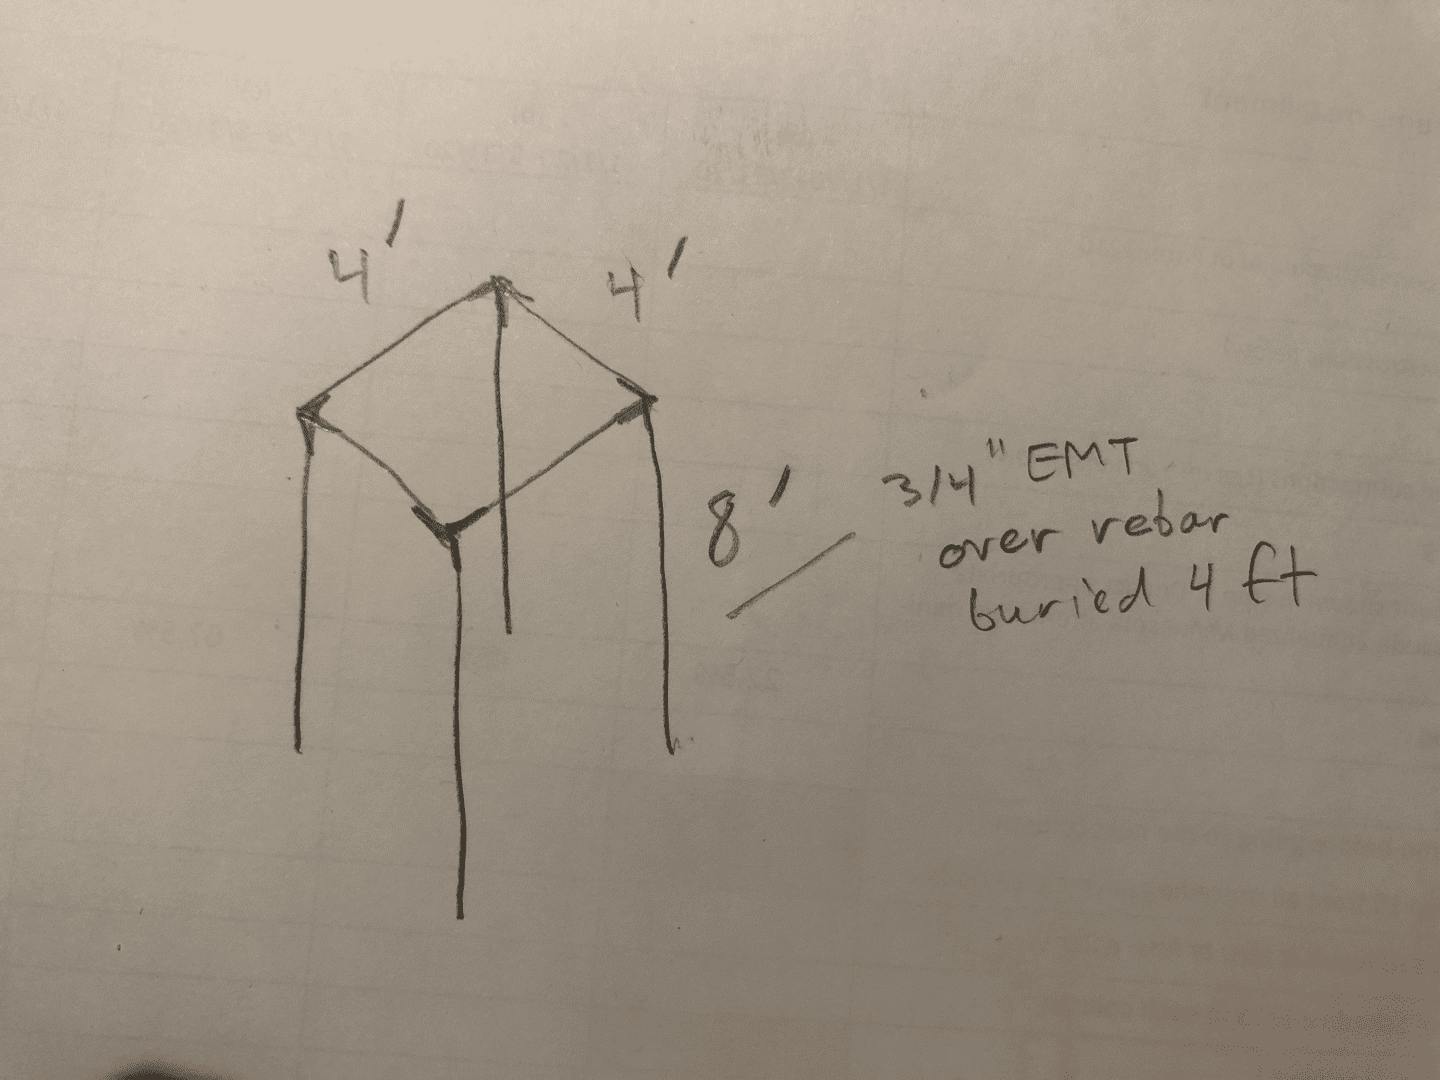 4'
4'
8'
3/4" EMT
over rebar
buried 4 ft